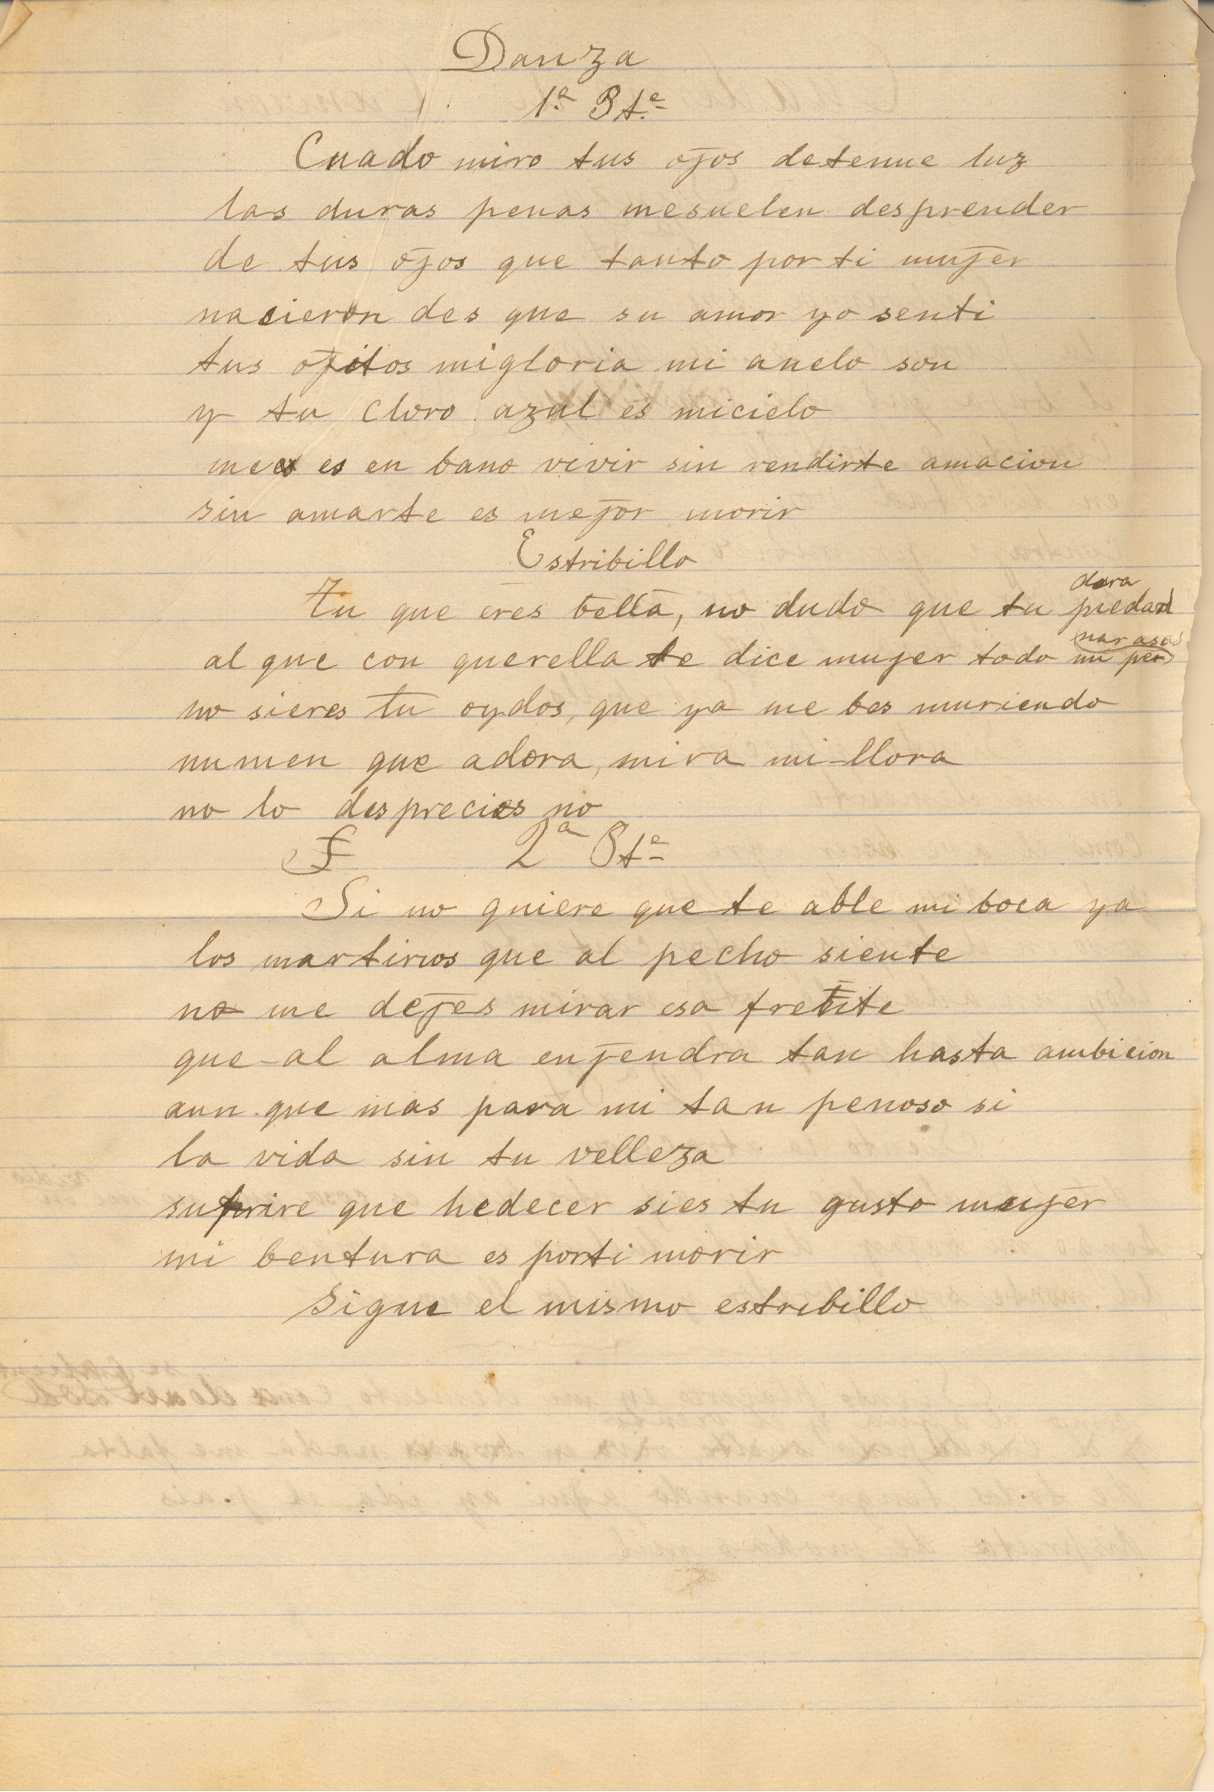 Danza
1ª Pte
Cuado miro tus ojos detenue luz
las duras penas mesuelen desprender
de tus ojos que tanto por ti mujer
nacieron des que su amor yo senti
tus ojitos migloria mi anelo son
y tu cloro azul es micielo
es en bano vivir sin rendirte amacion
sin amarte es mejor morir
Estribillo
Tu que eres bella, no dudo que tu piedad
dara
al que con querella te dice mujer todo mi pe
nar asus
no sieres tu oydos, que ya me bes muriendo
numen que adora, mira mi llora
no lo desprecies no
2ª Pte
Si no quiere que te able mi boca ya
los martirios que al pecho siente
no me dejes mirar esa frente
que al alma enjendra tan hasta ambicion
aun que mas para mi tan penoso si
la vida sin tu velleza
sufrire que hedecer sies tu gusto mujer
mi bentura es porti morir
Sigue el mismo estribillo